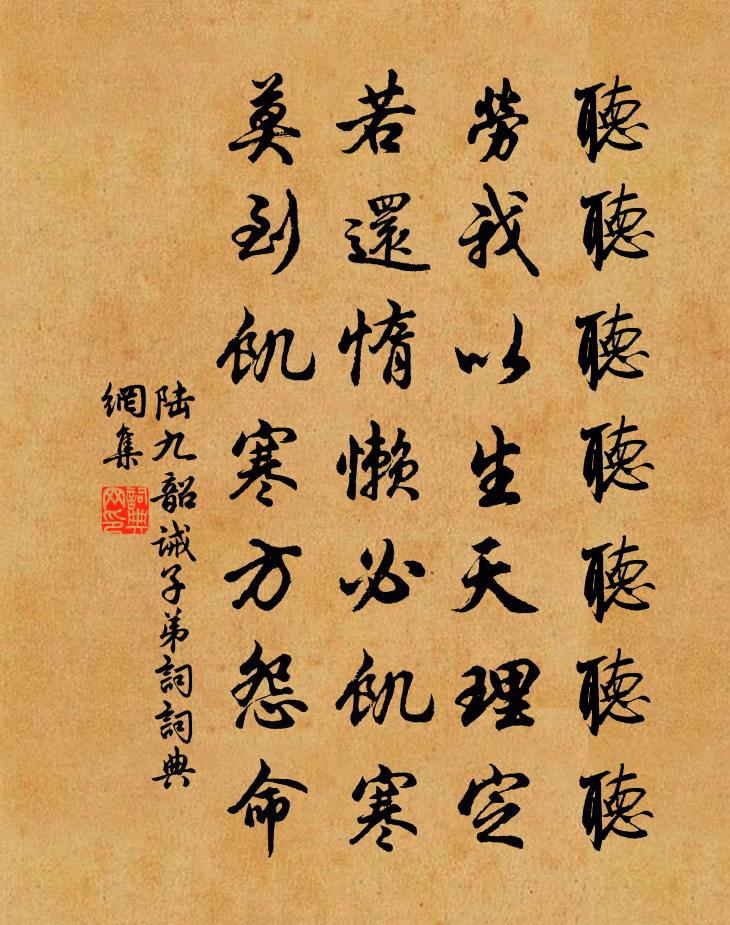 聽聽聽聽聽聽聽
勞我以生天理定
若還惰懶必飢寒
莫到飢寒方怨命
陆九韶诫子弟詞詞典
網集
詞典
网印